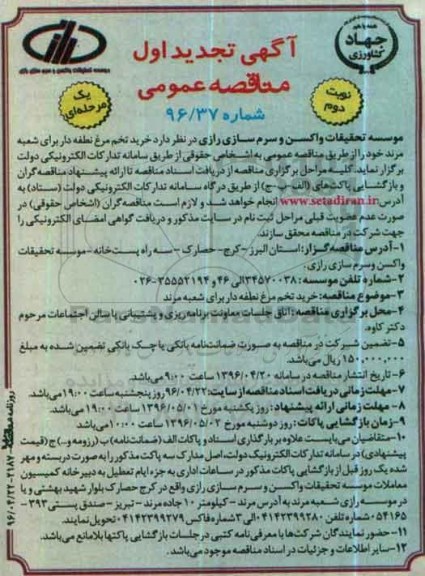 همه با هم
جهاد
کشاورزی
آگهی تجدید اول
مناقصه عمومی
شماره ۹۶/۳۷
موسسه تحقیقات واکسن و سرم سازی رازی
نوبت
دوم
یک
مرحله‌ای
موسسه تحقیقات واکسن و سرم سازی رازی در نظر دارد خرید تخم مرغ نطفه دار برای شعبه
مرند خود را از طریق مناقصه عمومی به اشخاص حقوقی از طریق سامانه تدارکات الکترونیکی دولت
برگزار نماید. کلیه مراحل برگزاری مناقصه از دریافت اسناد مناقصه تا ارائه پیشنهاد مناقصه گران
و بازگشایی پاکت‌های (الف-ب-ج) از طریق درگاه سامانه تدارکات الکترونیکی دولت (ستاد) به
آدرس www.setadiran.ir انجام خواهد شد و لازم است مناقصه گران (اشخاص حقوقی) در
صورت عدم عضویت قبلی مراحل ثبت نام در سایت مذکور و دریافت گواهی امضای الکترونیکی را
جهت شرکت در مناقصه محقق سازند.
۱-آدرس مناقصه گزار: استان البرز-کرج-حصارک-سه راه پست خانه-موسسه تحقیقات
واکسن وسرم سازی رازی.
۲-شماره تلفن موسسه: ۳۴۵۷۰۰۳۸الی ۴۶ و ۳۵۵۵۲۱۹۴-۰۲۶
۳-موضوع مناقصه: خرید تخم مرغ نطفه دار برای شعبه مرند
۴-محل برگزاری مناقصه: اتاق جلسات معاونت برنامه ریزی و پشتیبانی یا سالن اجتماعات مرحوم
دکتر کاوه.
۵-تضمین شرکت در مناقصه به صورت ضمانت‌نامه بانکی یا چک بانکی تضمین شده به مبلغ
۱۵۰,۰۰۰,۰۰۰ ریال می‌باشد.
۶- تاریخ انتشار مناقصه در سامانه ۱۳۹۶/۰۴/۲۰ ساعت ۹:۰۰ می‌باشد.
۷-مهلت زمانی دریافت اسناد مناقصه از سایت: ۹۶/۰۴/۲۲ روز پنجشنبه ساعت ۱۹:۰۰ می‌باشد.
۸- مهلت زمانی ارائه پیشنهاد: روز یکشنبه مورخ ۱۳۹۶/۰۵/۰۱ ساعت ۱۹:۰۰ می‌باشد.
۹-زمان بازگشایی پاکات: روز دوشنبه مورخ ۱۳۹۶/۰۵/۰۲ ساعت ۱۰:۰۰ می‌باشد.
۱۰-متقاضیان می‌بایست علاوه بر بارگذاری اسناد و پاکات الف (ضمانت‌نامه) ب (رزومه و..) ج (قیمت
پیشنهادی) در سامانه تدارکات الکترونیک دولت، اصل مدارک سه پاکت مذکور را به صورت دربسته و مهر
شده یک روز قبل از بازگشایی پاکات مذکور در ساعات اداری به جزء ایام تعطیل به دبیرخانه کمیسیون
معاملات موسسه تحقیقات واکسن و سرم سازی رازی واقع در کرج حصارک بلوار شهید بهشتی و یا
در موسسه رازی شعبه مرند به آدرس مرند - کیلومتر ۱۰ جاده مرند - تبریز - صندوق پستی ۳۹۳-
۵۴۱۶۵ شماره تلفن ۰۴۱۴۲۳۹۹۲۸۰الی ۳ شماره فاکس ۰۴۱۴۲۳۹۹۲۷۹ تحویل نمایند.
۱۱-حضور نمایندگان شرکت‌ها با معرفی نامه کتبی در جلسات بازگشایی پاکتها بلامانع می‌باشد.
۱۲-سایر اطلاعات و جزئیات در اسناد مناقصه موجود می‌باشد.
۹۶/۰۴/۲۲-۲۱۸۷